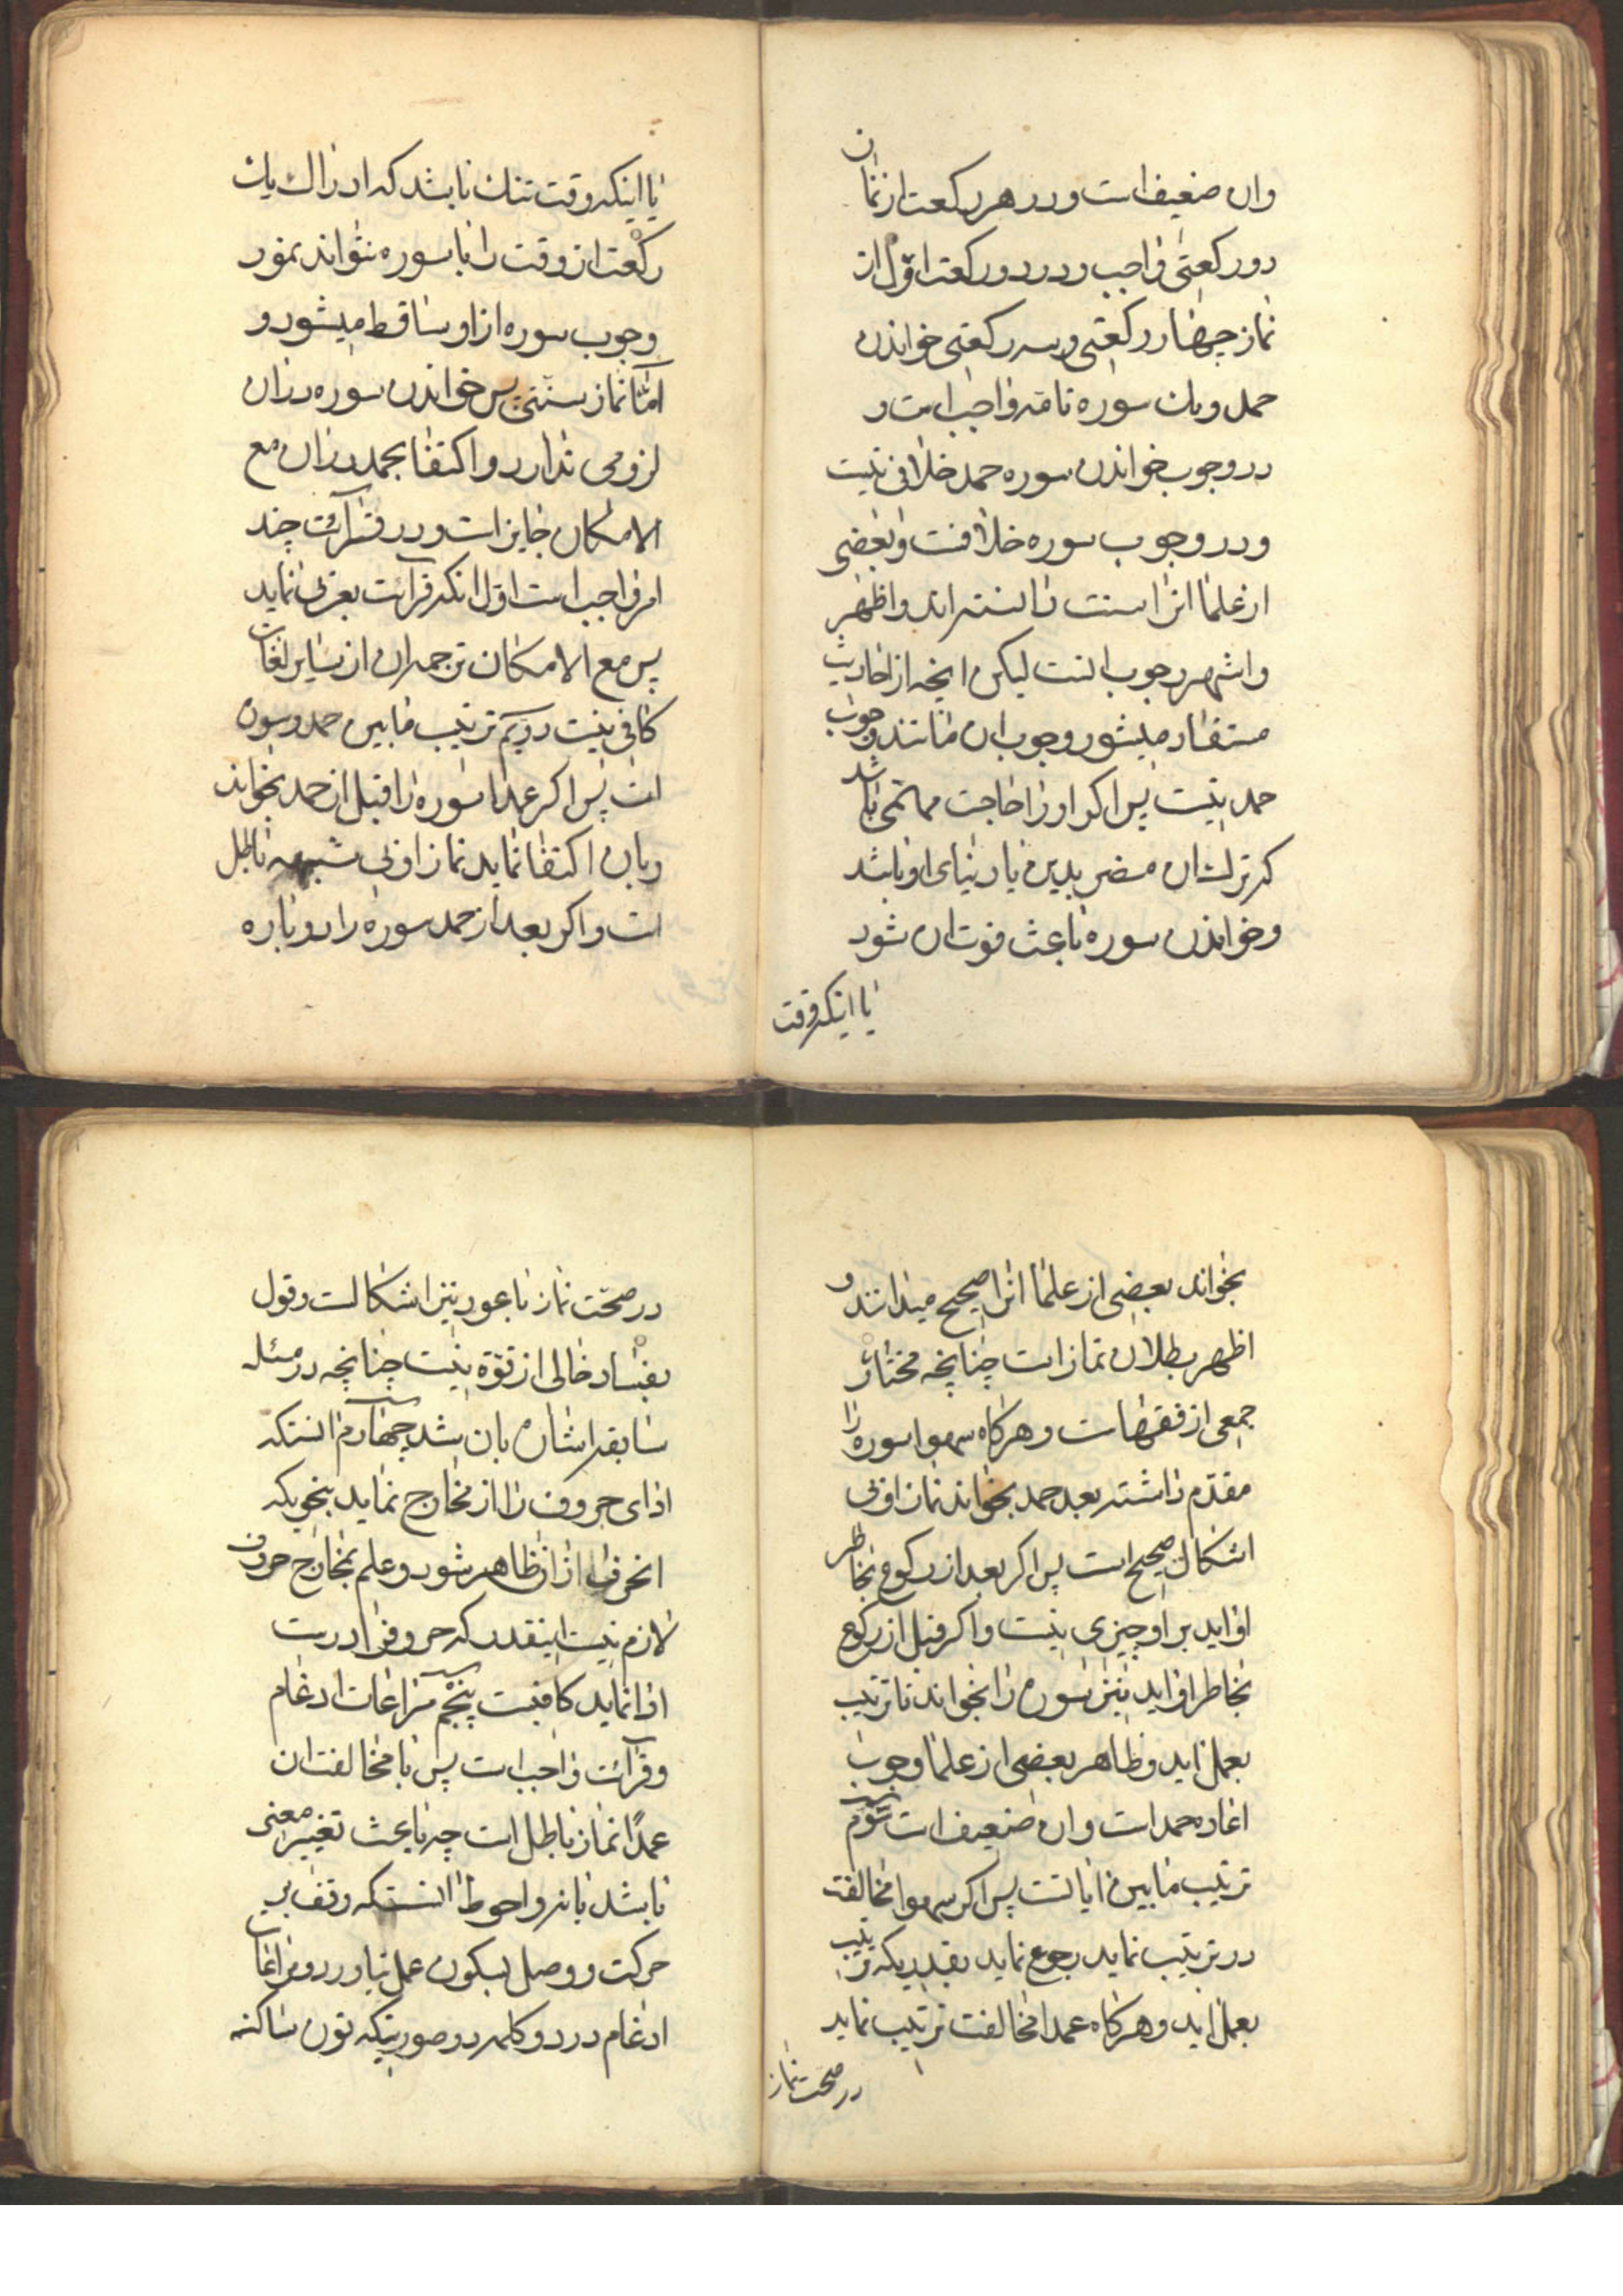 وان ضعیف است و در هر رکعت از نماز
دو رکعتی واجب و در دو رکعت اول از
نماز چهار رکعتی و سه رکعتی خواندن
حمد و یک سوره تامه واجب است و
در وجوب خواندن سوره حمد خلافی نیست
و در وجوب سوره خلافست و بعضی
از علما انرا سنت دانسته‌اند و اظهر
و اشهر وجوب انست لیکن انچه از احادیث
مستفاد میشود وجوب ان مانند وجوب
حمد نیست پس اکر او را حاجت مهمی باشد
که ترک ان مضر بدین یا دنیای او باشد
و خواندن سوره باعث فوت ان شود
یا اینکه وقت
یا اینکه وقت تنک باشد که ادراک یک
رکعت از وقت را با سوره نتواند نمود
وجوب سوره از او ساقط میشود و
اما نماز سنتی پس خواندن سوره در ان
لزومی ندارد و اکتفا بحمد در ان مع
الامکان جایز است و در قرائت چند
امر واجب است اول انکه قرائت بعربی نماید
پس مع الامکان ترجمه ان از سایر لغات
کافی نیست دویم ترتیب مابین حمد و سوره
است پس اکر عمدا سوره را قبل از حمد بخواند
و بان اکتفا نماید نماز او بی شبهه باطل
است و اکر بعد از حمد سوره را دوباره
بخواند بعضی از علما انرا صحیح میدانند و
اظهر بطلان نماز است چنانچه مختار
جمعی از فقهاست و هرکاه سهوا سوره را
مقدم داشته بعد حمد بخواند نماز او بی
اشکال صحیح است پس اکر بعد از رکوع بخاطر
او اید بر او چیزی نیست و اکر قبل از رکوع
بخاطر او اید نیز سوره را بخواند تا ترتیب
بعمل اید و ظاهر بعضی از علما وجوب
اعاده حمد است و ان ضعیف است سوم
ترتیب مابین ایاتست پس اکر سهوا مخالفت
در ترتیب نماید رجوع نماید بقدریکه ترتیب
بعمل اید و هرکاه عمدا مخالفت ترتیب نماید
در صحت نماز
در صحت نماز با عود نیز اشکالست و قول
بفساد خالی از قوة نیست چنانچه در مسئله
سابقه اشاره بان شد چهارم انستکه
ادای حروف را از مخارج نماید بنحویکه
انحرف از ان ظاهر شود و علم بمخارج حروف
لازم نیست اینقدر که حروفرا درست
ادا نماید کافیست پنجم مراعات ادغام
و قرائت واجب است پس با مخالفت ان
عمدًا نماز باطل است چه باعث تغییر معنی
باشد یا نه و احوط انستکه وقف بر
حرکت و وصل بسکون عمل نیاورد و مراعات
ادغام در دو کلمه در صورتیکه نون ساکنه